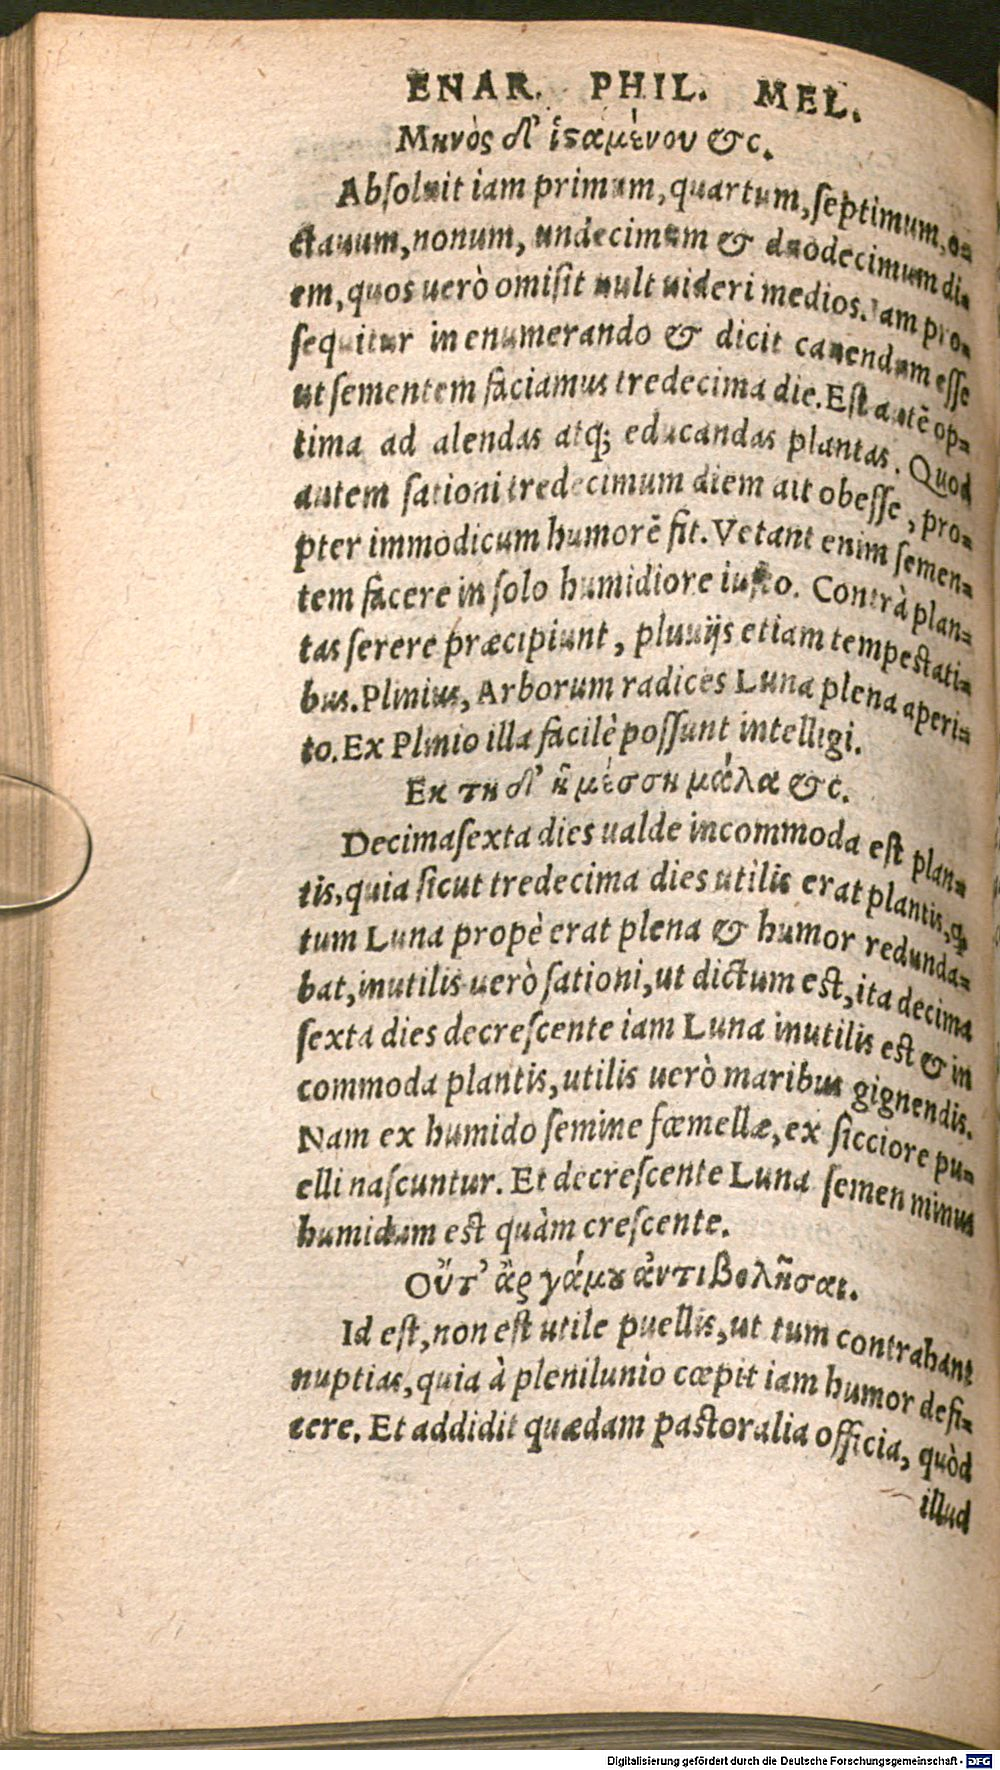 ENAR. PHIL. MEL.
Μηνὸς δ' ἱσταμένου &c.
Absoluit iam primum, quartum, septimum, o-
ctauum, nonum, undecimum & duodecimum di-
em, quos uerò omisit uult uideri medios. Iam pro-
sequitur in enumerando & dicit cauendum esse
ut sementem faciamus tredecima die. Est autē op-
tima ad alendas atq; educandas plantas. Quod
autem sationi tredecimum diem ait obesse, pro-
pter immodicum humorē fit. Vetant enim semen-
tem facere in solo humidiore iusto. Contrà plan-
tas serere præcipiunt, pluuijs etiam tempestati-
bus. Plinius, Arborum radices Luna plena aperi-
to. Ex Plinio illa facilè possunt intelligi.
Εκτη δ' ἡ μέσση μάλα &c.
Decimasexta dies ualde incommoda est plan-
tis, quia sicut tredecima dies utilis erat plantis, ꝗ
tum Luna propè erat plena & humor redunda-
bat, inutilis uerò sationi, ut dictum est, ita decima
sexta dies decrescente iam Luna inutilis est & in
commoda plantis, utilis uerò maribus gignendis.
Nam ex humido semine fœmellæ, ex sicciore pu-
elli nascuntur. Et decrescente Luna semen minus
humidum est quàm crescente.
Οὔτ' ἂρ γάμου ἀντιβολῆσαι.
Id est, non est utile puellis, ut tum contrahant
nuptias, quia à plenilunio cœpit iam humor defi-
cere. Et addidit quædam pastoralia officia, quòd
illud
Digitalisierung gefördert durch die Deutsche Forschungsgemeinschaft - DFG